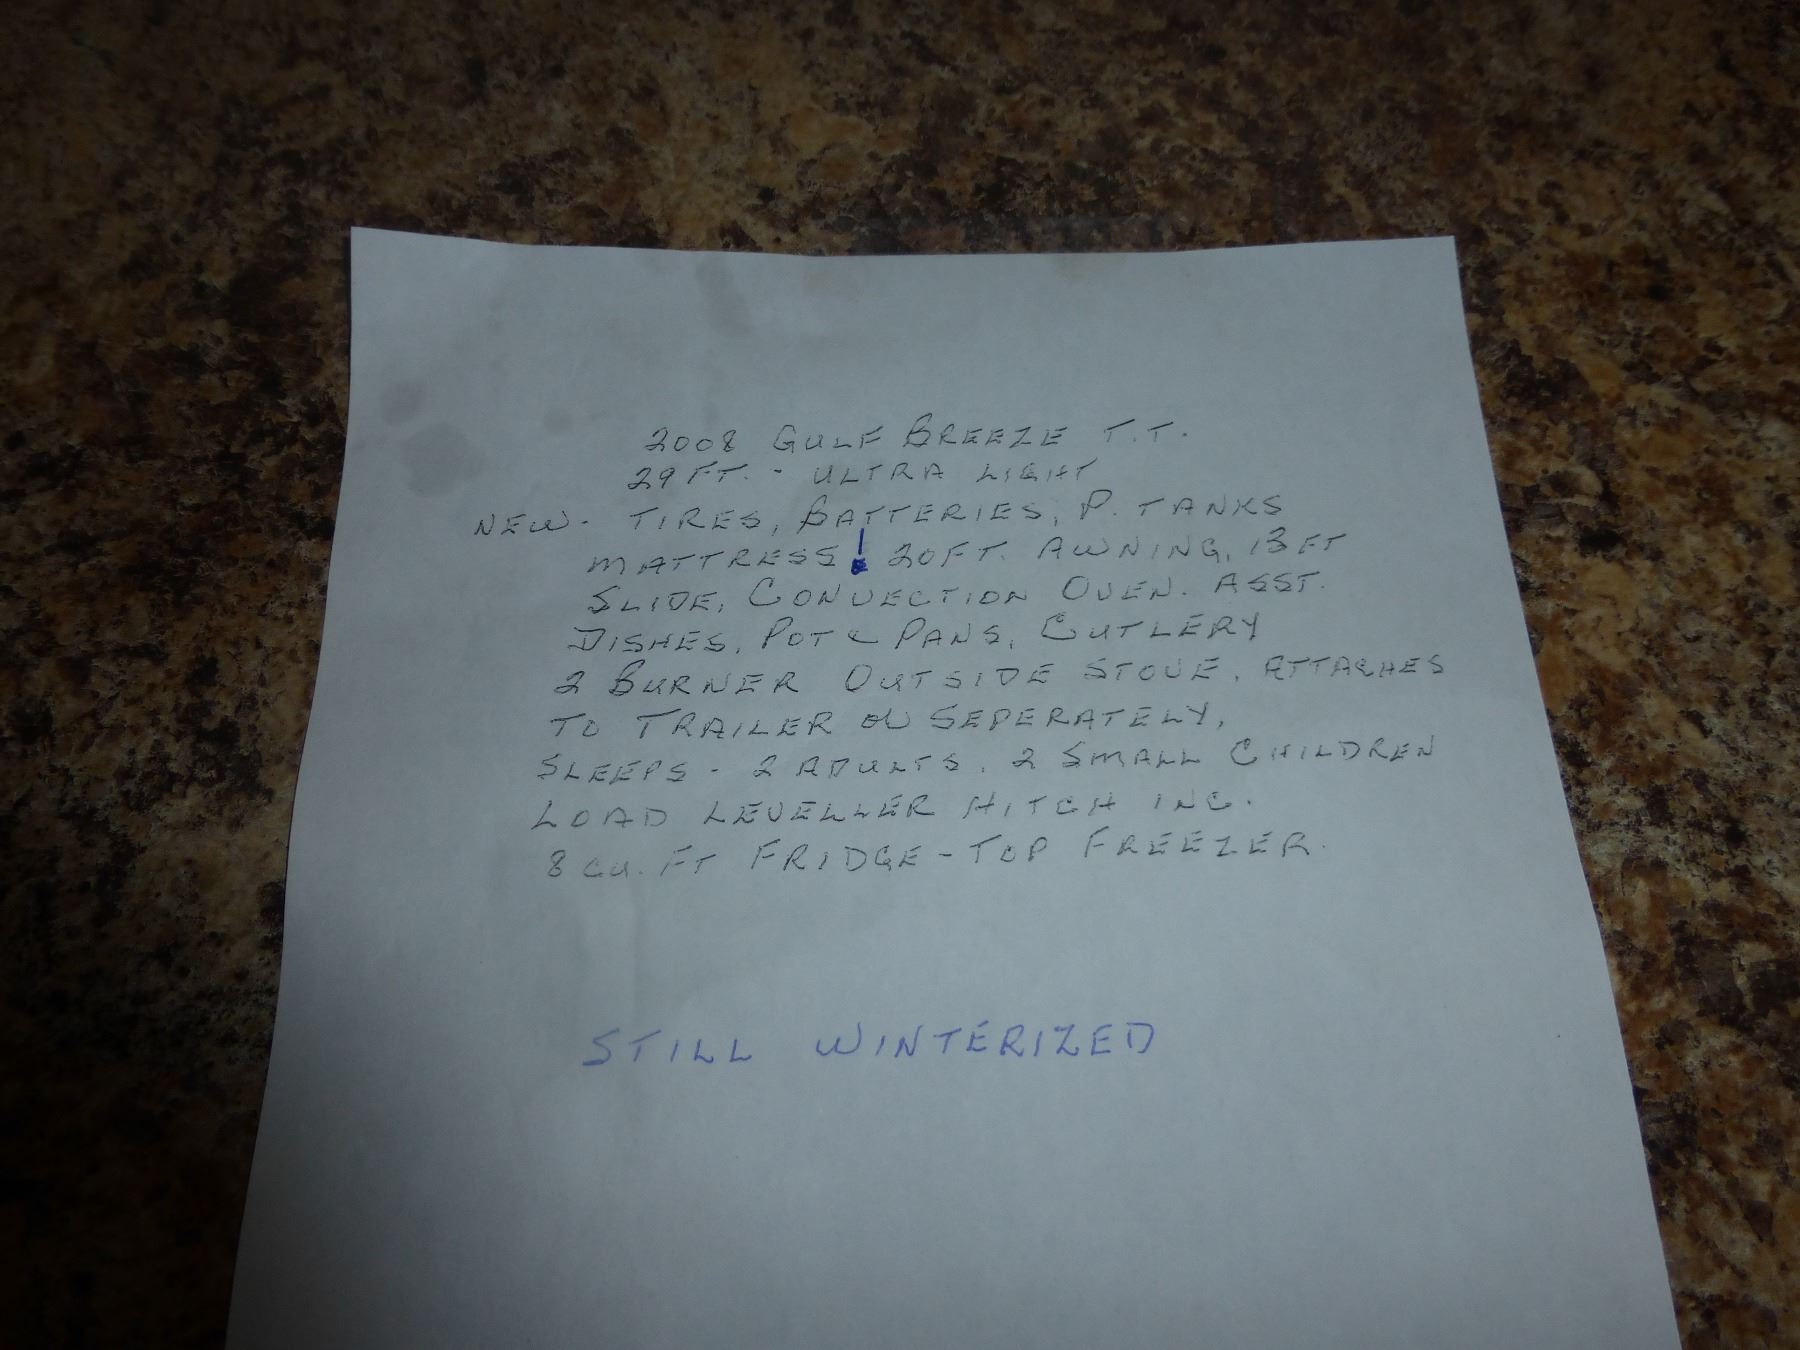 2008 GULF BREEZE T.T.
29 FT. - ULTRA LIGHT
NEW - TIRES, BATTERIES, P. TANKS
MATTRESS! 20 FT. AWNING, 13 FT
SLIDE, CONVECTION OVEN. ASST.
DISHES, POT & PANS, CUTLERY
2 BURNER OUTSIDE STOVE, ATTACHES
TO TRAILER OU SEPERATELY,
SLEEPS - 2 ADULTS, 2 SMALL CHILDREN
LOAD LEVELLER HITCH INC.
8 CU. FT FRIDGE - TOP FREEZER.
STILL WINTERIZED